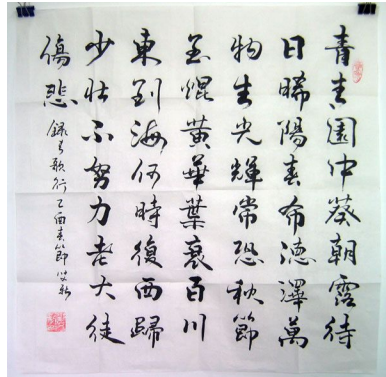 青青園中葵朝露待
日晞陽春布德澤萬
物生光輝常恐秋節
至焜黃華葉衰百川
東到海何時復西歸
少壯不努力老大徒
傷悲
錄長歌行乙酉春節